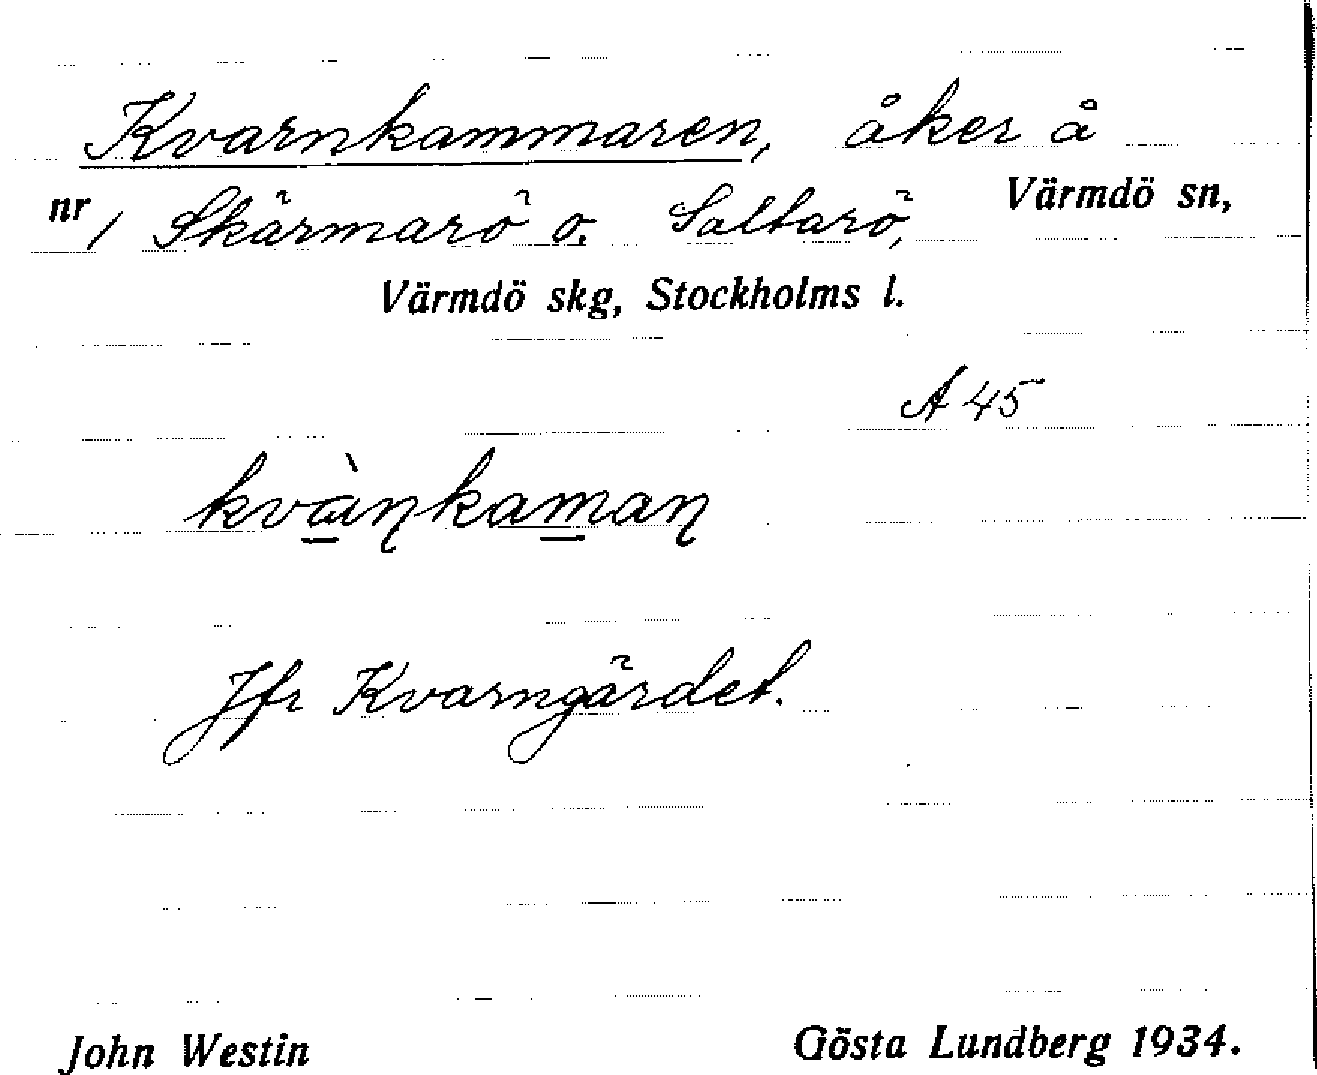 Kvarnkammaren, åker å
nr 1 Skärmarö o. Saltarö, Värmdö sn,
Värmdö skg, Stockholms l.
A 45
Jfr Kvarngärdet.
John Westin Gösta Lundberg 1934.